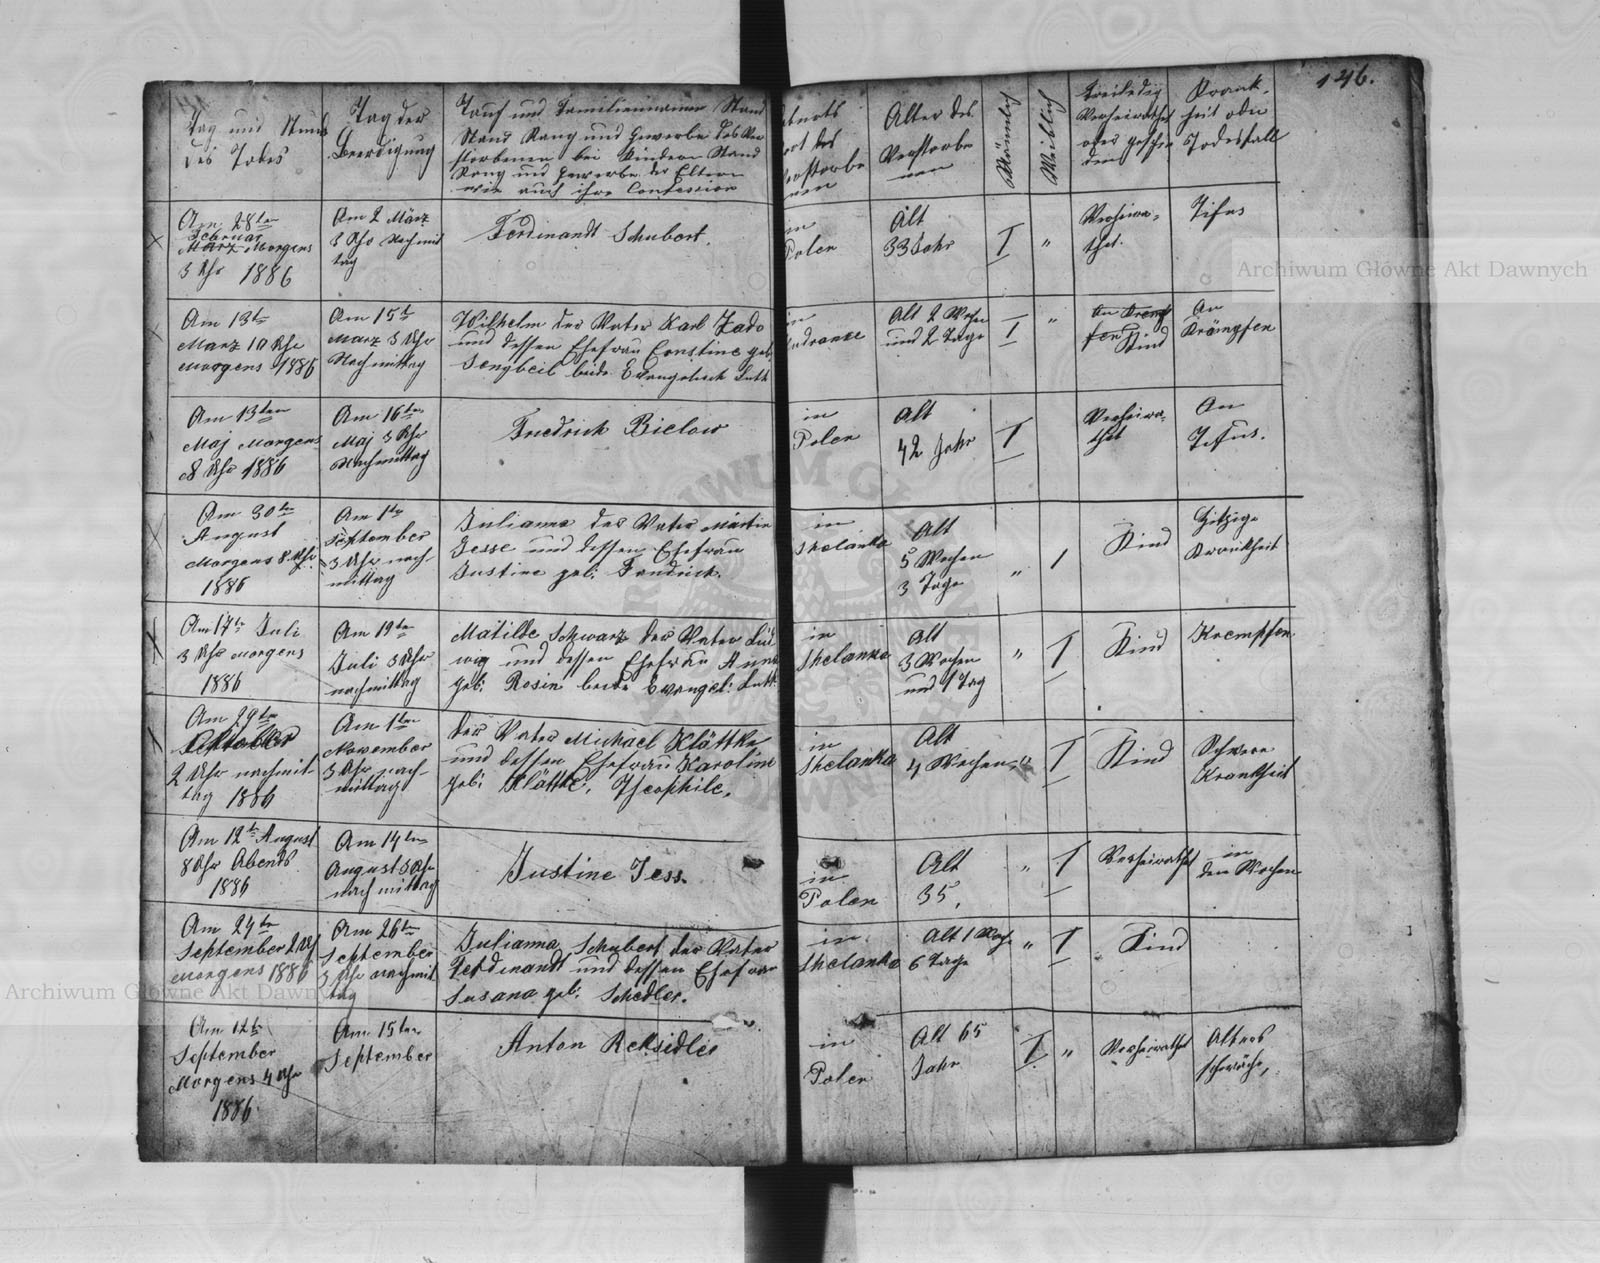 146.
Tag und Stund
des Todes
Tag der
Beerdigung
Tauf und Familiennamen Stand
Stand Rang und Gewerbe des Ver
storbenen bei Kindern Stand
Rang und Gewerbe der Eltern
wie auch ihre Confession
ort des
Verstorbe
nen
Alter des
Verstorbe
nen
Männlich
Weiblich
Verheirathet
oder geschie
den
Krank-
heit oder
Todesfall
Am 28ten
Februar
März Morgens
3 Uhr 1886
Am 2 März
3 Uhr Nachmit
tag
Ferdinandt Schubert.
in
Polen
Alt
33 Jahr
I
"
Verheira-
thet.
Tifus
Am 13te
März 10 Uhr
morgens 1886
Am 15te
März 3 Uhr
Nachmittag
Wilhelm der Vater Karl Zado
und dessen Ehefrau Ernstine geb
Sengbeil beide Evangelisch Luth
in
Alt 2 Wochen
und 2 Tage
I
"
Kind
An
Krämpfen
Am 13ten
Maj Morgens
8 Uhr 1886
Am 16ten
Maj 3 Uhr
Nachmittag
Friedrich Bielow
in
Polen
Alt
42 Jahr
I
Verheira-
thet
An
Tifus.
Am 30ten
August
Morgens 8 Uhr
1886
Am 1te
September
3 Uhr nach-
mittag
Julianna der Vater Martin
Jesse und dessen Ehefrau
Justine geb: Fendrich.
in
Shelanka
Alt
5 Wochen
3 Tage
"
1
Kind
Hitzige
Krankheit
Am 17te Juli
3 Uhr Morgens
1886
Am 19ten
Juli 3 Uhr
nachmittag
Matilde Schwarz der Vater Lud
wig und dessen Ehefrau Anna
geb: Rosin beide Evangel: Luth:
in
Shelanka
Alt
3 Wochen
und 1 Tag
"
I
Kind
Krempfen
Am 29ten
Oktober
2 Uhr nachmit-
tag 1886
Am 1ten
November
3 Uhr nach-
mittag
der Vater Michael Klättke
und dessen Ehefrau Karoline
geb: Klättke, Theophile,
in
Shelanka
Alt
4 Wochen
"
I
Kind
Schwere
Krankheit
Am 12te August
8 Uhr Abends
1886
Am 14ten
August 3 Uhr
nach mittag
Justine Jess.
in
Polen
Alt
35,
"
I
Verheirathet
in
den Wochen
Am 24te
September 2 Uhr
Morgens 1886
Am 26ten
September
3 Uhr nachmit
tag
Julianna Schubert der Vater
Ferdinandt und dessen Ehefrau
Susana geb: Schedler.
in
Shelanka
Alt 1 Woch
6 Tage
"
I
Kind
Am 12te
September
Morgens 4 Uhr
1886
Am 15ten
September
Anton Reksidler
in
Polen
Alt 65
Jahr
I
"
Verheirathet
Alters
schwäche,
Archiwum Główne Akt Dawnych
Archiwum Główne Akt Dawnych